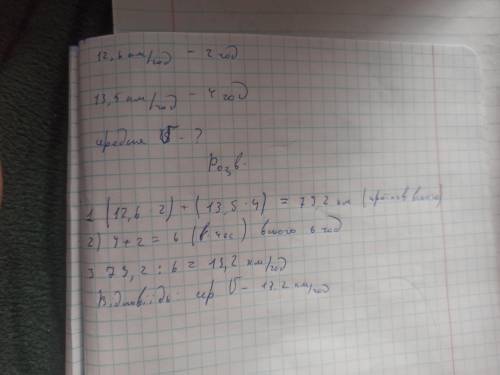 12,6 км/год - 2 год
13,5 км/год - 4 год
середня V - ?
Розв.
1 (12,6 · 2) + (13,5 · 4) = 79,2 км (
2) 4+2 = 6 (в час) всього 6 год
3 79,2 : 6 = 13,2 км/год
Відповідь: сер V - 13.2 км/год